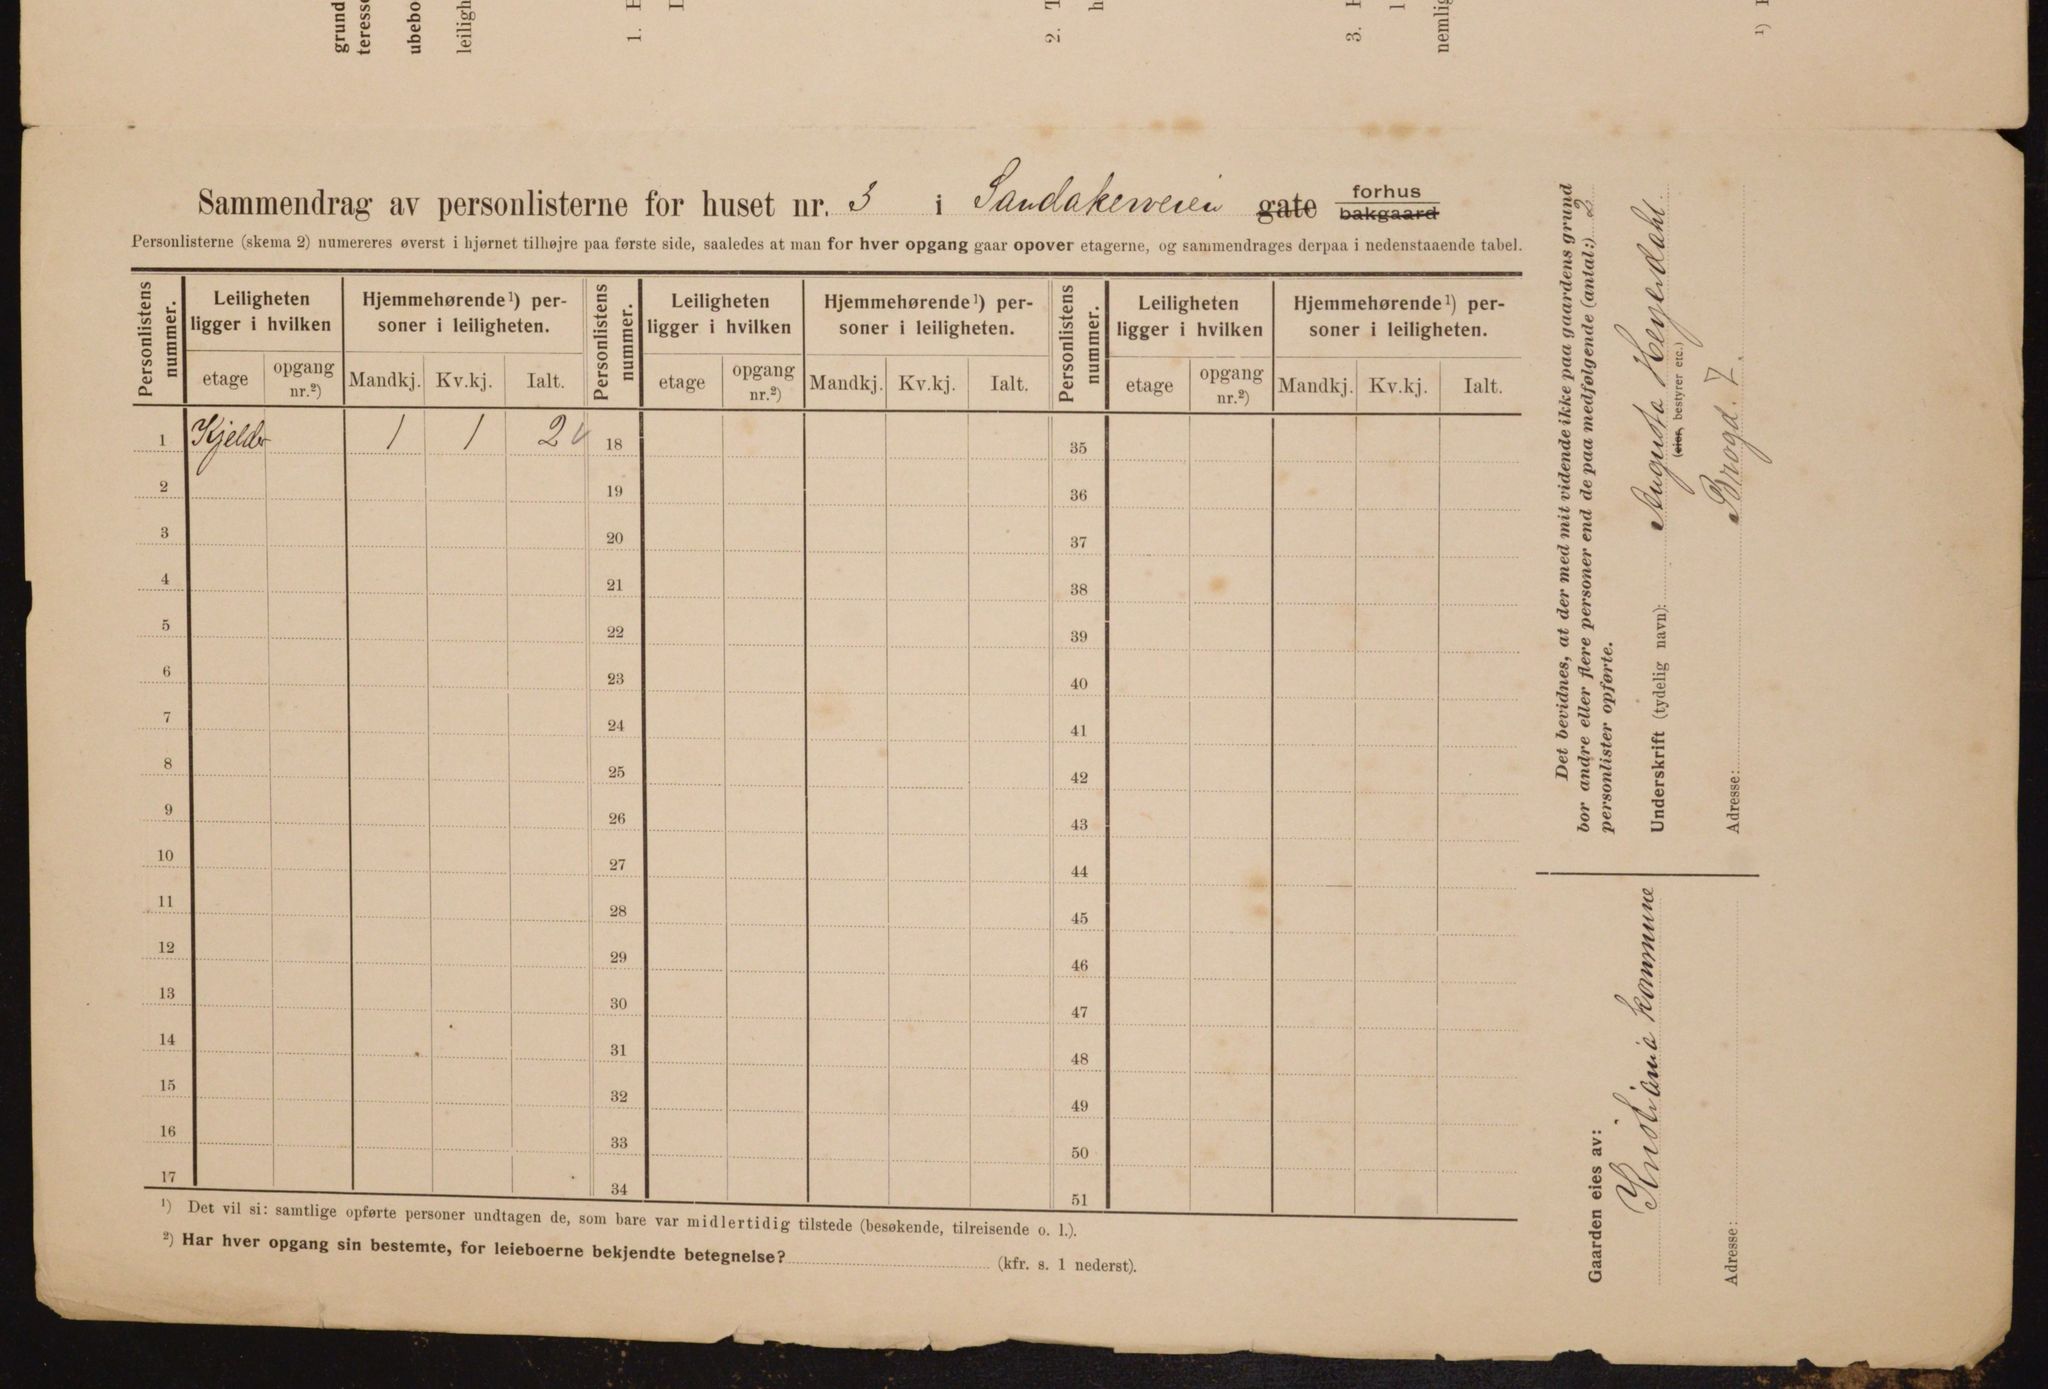 grund
teresse
ubebo
leiligh
1. E
2. T
h
3. E
l
nemlig
¹)
Sammendrag av personlisterne for huset nr. 3 i Sandakerveien ~~gate~~ forhus ~~bakgaard~~
Personlisterne (skema 2) numereres øverst i hjørnet tilhøjre paa første side, saaledes at man for hver opgang gaar opover etagerne, og sammendrages derpaa i nedenstaaende tabel.
Personlistens nummer. Leiligheten ligger i hvilken Hjemmehørende¹) personer i leiligheten. Personlistens nummer. Leiligheten ligger i hvilken Hjemmehørende¹) personer i leiligheten. Personlistens nummer. Leiligheten ligger i hvilken Hjemmehørende¹) personer i leiligheten.
etage opgang nr.²) Mandkj. Kv.kj. Ialt. etage opgang nr.²) Mandkj. Kv.kj. Ialt. etage opgang nr.²) Mandkj. Kv.kj. Ialt.
1 Kjelder 1 1 2 18 35
2 19 36
3 20 37
4 21 38
5 22 39
6 23 40
7 24 41
8 25 42
9 26 43
10 27 44
11 28 45
12 29 46
13 30 47
14 31 48
15 32 49
16 33 50
17 34 51
¹) Det vil si: samtlige opførte personer undtagen de, som bare var midlertidig tilstede (besøkende, tilreisende o. l.).
²) Har hver opgang sin bestemte, for leieboerne bekjendte betegnelse? (kfr. s. 1 nederst).
Det bevidnes, at der med mit vidende ikke paa gaardens grund
bor andre eller flere personer end de paa medfølgende (antal:) 2
personlister opførte.
Underskrift (tydelig navn): Augusta Heyerdahl
(~~eier~~, bestyrer etc.)
Adresse: Brogd. 7.
Gaarden eies av:
Kristiania kommune
Adresse: